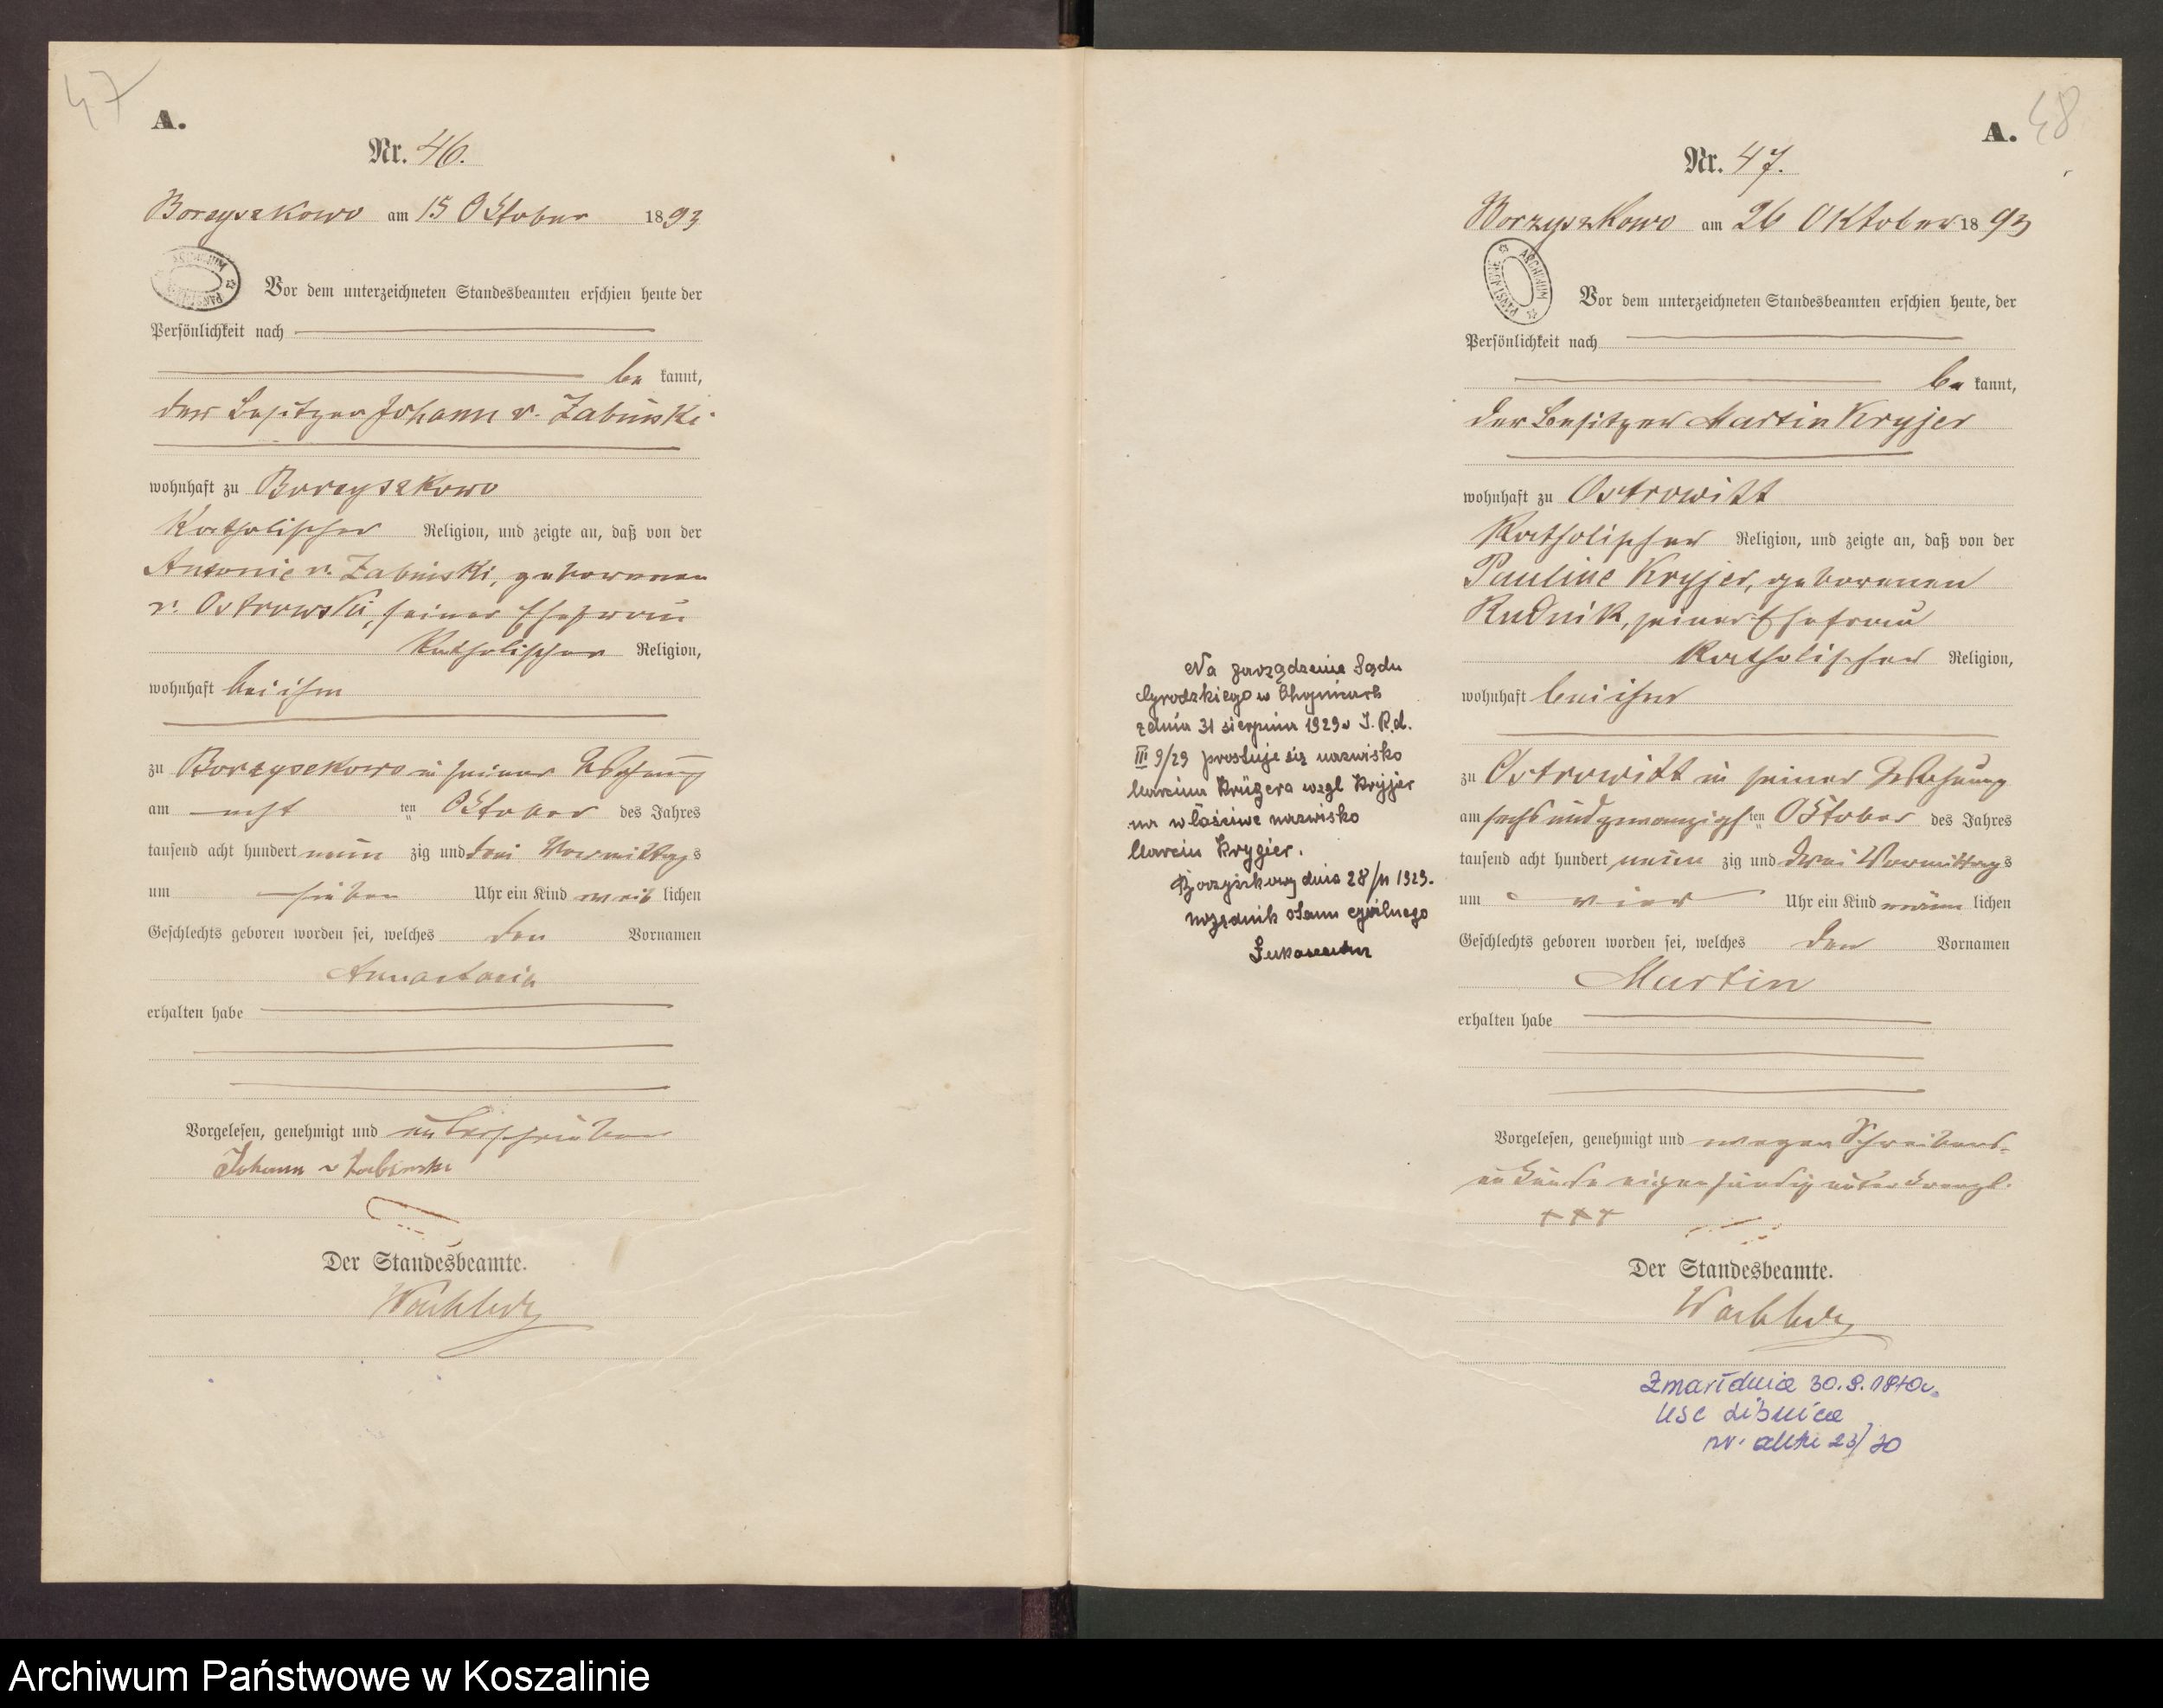 47
A.
Nr. 46.
Borzyszkowo am 15 Oktober 1893
ARCHIWUM PAŃSTWOWE
Vor dem unterzeichneten Standesbeamten erschien heute der
Persönlichkeit nach
be kannt,
der Besitzer Johann v. Zabinski
wohnhaft zu Borzyszkowo
Katholischer Religion, und zeigte an, daß von der
Antonie v. Zabinski, geborenen
v. Ostrowski, seiner Ehefrau
Katholischer Religion,
wohnhaft bei ihm
zu Borzyszkowo in seiner Wohnung
am acht ten Oktober des Jahres
tausend acht hundert neun zig und drei Vormittags
um sieben Uhr ein Kind weib lichen
Geschlechts geboren worden sei, welches den Vornamen
Annastasia
erhalten habe
Vorgelesen, genehmigt und unterschrieben
Johann v Zabinski
Der Standesbeamte.
48
A.
Nr. 47.
Borzyszkowo am 26 Oktober 1893
ARCHIWUM PAŃSTWOWE
Vor dem unterzeichneten Standesbeamten erschien heute, der
Persönlichkeit nach
be kannt,
der Besitzer Martin Kryjer
wohnhaft zu Ostrowitt
Katholischer Religion, und zeigte an, daß von der
Pauline Kryjer, geborenen
Rudnik, seiner Ehefrau
Katholischer Religion,
wohnhaft bei ihm
zu Ostrowitt in seiner Wohnung
am sechsundzwanzigsten Oktober des Jahres
tausend acht hundert neun zig und drei Vormittags
um vier Uhr ein Kind männ lichen
Geschlechts geboren worden sei, welches den Vornamen
Martin
erhalten habe
Vorgelesen, genehmigt und wegen Schreibens-
unkunde eigenhändig unterkreuzt.
+++
Der Standesbeamte.
Na zarządzenie Sądu
Grodzkiego w Chojnicach
z dnia 31 sierpnia 1929 r. J. R. d.
III 9/29 prostuje się nazwisko
Marcina Krügera wzgl Kryjer
na właściwe nazwisko
Marcin Krygier.
Borzyszkowy dnia 28/11 1929.
urzędnik stanu cywilnego
Zmarł dnia 30.
USC
nr. aktu 23/70
Archiwum Państwowe w Koszalinie